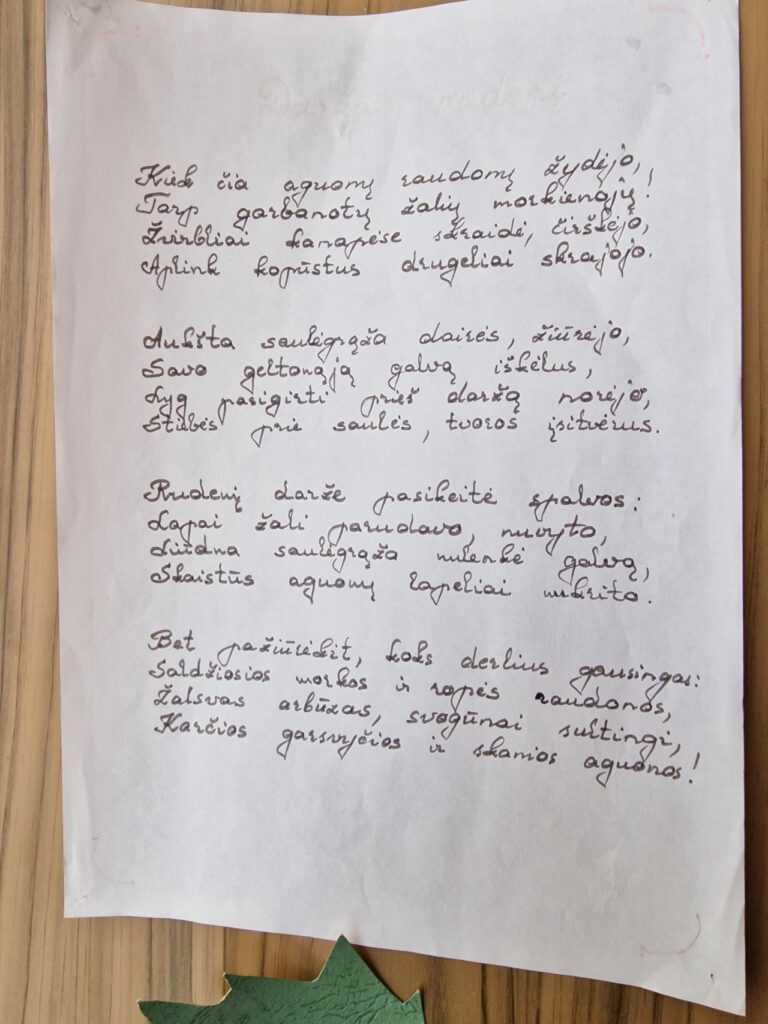 Daržai rudenį
Kiek čia aguonų raudonų žydėjo,
Tarp garbanotų žalių morkienojų!
Žvirbliai kanapėse skraidė, čirškėjo,
Aplink kopūstus drugeliai skrajojo.
Aukšta saulėgrąža dairės, žiūrėjo,
Savo geltonąją galvą iškėlus,
Lyg pasigirti prieš daržą norėjo,
Stiebės prie saulės, tvoros įsitvėrus.
Rudenį darže pasikeitė spalvos:
Lapai žali parudavo, nuvyto,
Liūdna saulėgrąža nulenkė galvą,
Skaistūs aguonų lapeliai nukrito.
Bet pažiūrėkit, koks derlius gausingas:
Saldžiosios morkos ir ropės raudonos,
Žalsvas arbūzas, svogūnai sultingi,
Karčios garsvyčios ir skanios aguonos!